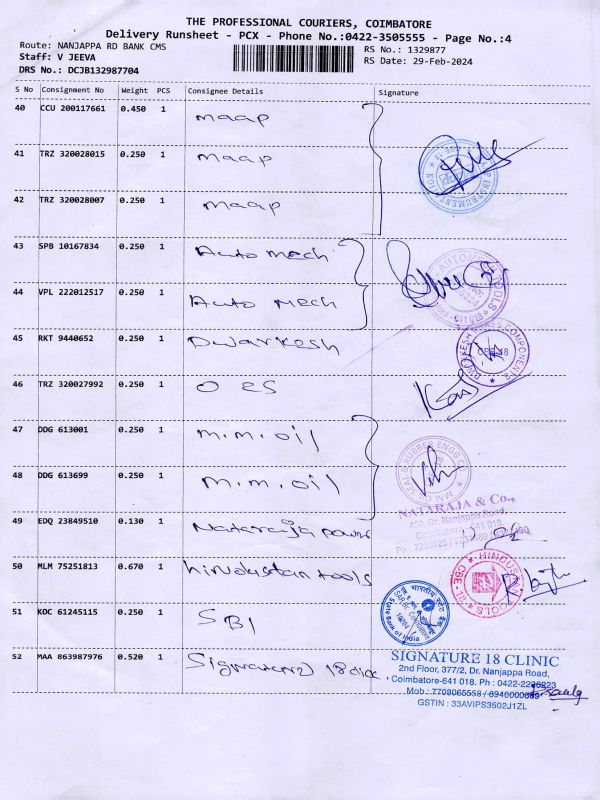 THE PROFESSIONAL COURIERS, COIMBATORE
Delivery Runsheet - PCX - Phone No.:0422-3505555 - Page No.:4
Route: NANJAPPA RD BANK CMS
RS No.: 1329877
Staff: V JEEVA
RS Date: 29-Feb-2024
DRS No.: DCJB132987704
S No Consignment No Weight PCS Consignee Details Signature
40 CCU 200117661 0.450 1 maap
41 TRZ 320028015 0.250 1 maap
42 TRZ 320028007 0.250 1 maap
43 SPB 10167834 0.250 1 Auto mech
44 VPL 222012517 0.250 1 Auto mech
45 RKT 9440652 0.250 1 Dwarkesh
46 TRZ 320027992 0.250 1 O ES
47 DDG 613001 0.250 1 m.m.oil
48 DDG 613699 0.250 1 m.m.oil
NATARAJA & Co.,
450, Dr. Nanjappa Road,
49 EDQ 23849510 0.130 1 Nataraja power
50 MLM 75251813 0.670 1 hindustan tools
51 KOC 61245115 0.250 1 SBI
State Bank of India
52 MAA 863987976 0.520 1
SIGNATURE 18 CLINIC
2nd Floor, 377/2, Dr. Nanjappa Road,
Coimbatore-641 018. Ph : 0422-2236223
Mob.:7708065568 / 8940000689
GSTIN : 33AVIPS3502J1ZL